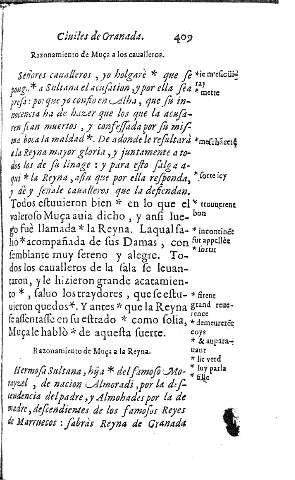 Ciuiles de Granada. 409
Razonamiento de Muça a los caualleros.
Señores caualleros, yo holgarè * que se
pong. * a Sultana el acusation, y por ella sea
presa: porque yo confio en Alha, que su in-
nocencia ha de hazer que los que la acusa-
ren sean muertos, y confessada por su mis-
me boca la maldad *. De adonde le resultarà
a la Reyna mayor gloria, y juntamente a to-
dos los de su linage: y para esto salga a-
qui * la Reyna, asin que por ella responda,
y dè y señale caualleros que la defiendan.
Todos estuuieron bien * en lo que el
valeroso Muça auia dicho, y ansi lue-
go fuè llamada * la Reyna. La qual sa-
lio * acompañada de sus Damas, con
semblante muy sereno y alegre. To-
dos los caualleros de la sala se leuan-
taron, y le hizieron grande acatamien-
to *, saluo los traydores, que se estu-
uieron quedos *. Y antes * que la Reyna
se assentasse en su estrado * como solia,
Muça le hablò * de aquesta suerte.
Razonamiento de Muça a la Reyna.
Hermosa Sultana, hija * del famoso Mo-
rayzel, de nacion Almoradi, por la des-
cendencia del padre, y Almohades por la de
madre, descendientes de los famosos Reyes
de Marruecos: sabràs Reyna de Granada
ray
* mette
* meschãceté
* sorte icy
* trouuerent
bon
* incontinẽt
fut appellée
* sortit
* firent
grand reue-
rence
* demeurerẽt
coys
* & aupara-
uant
* lit verd
* luy parla
* fille